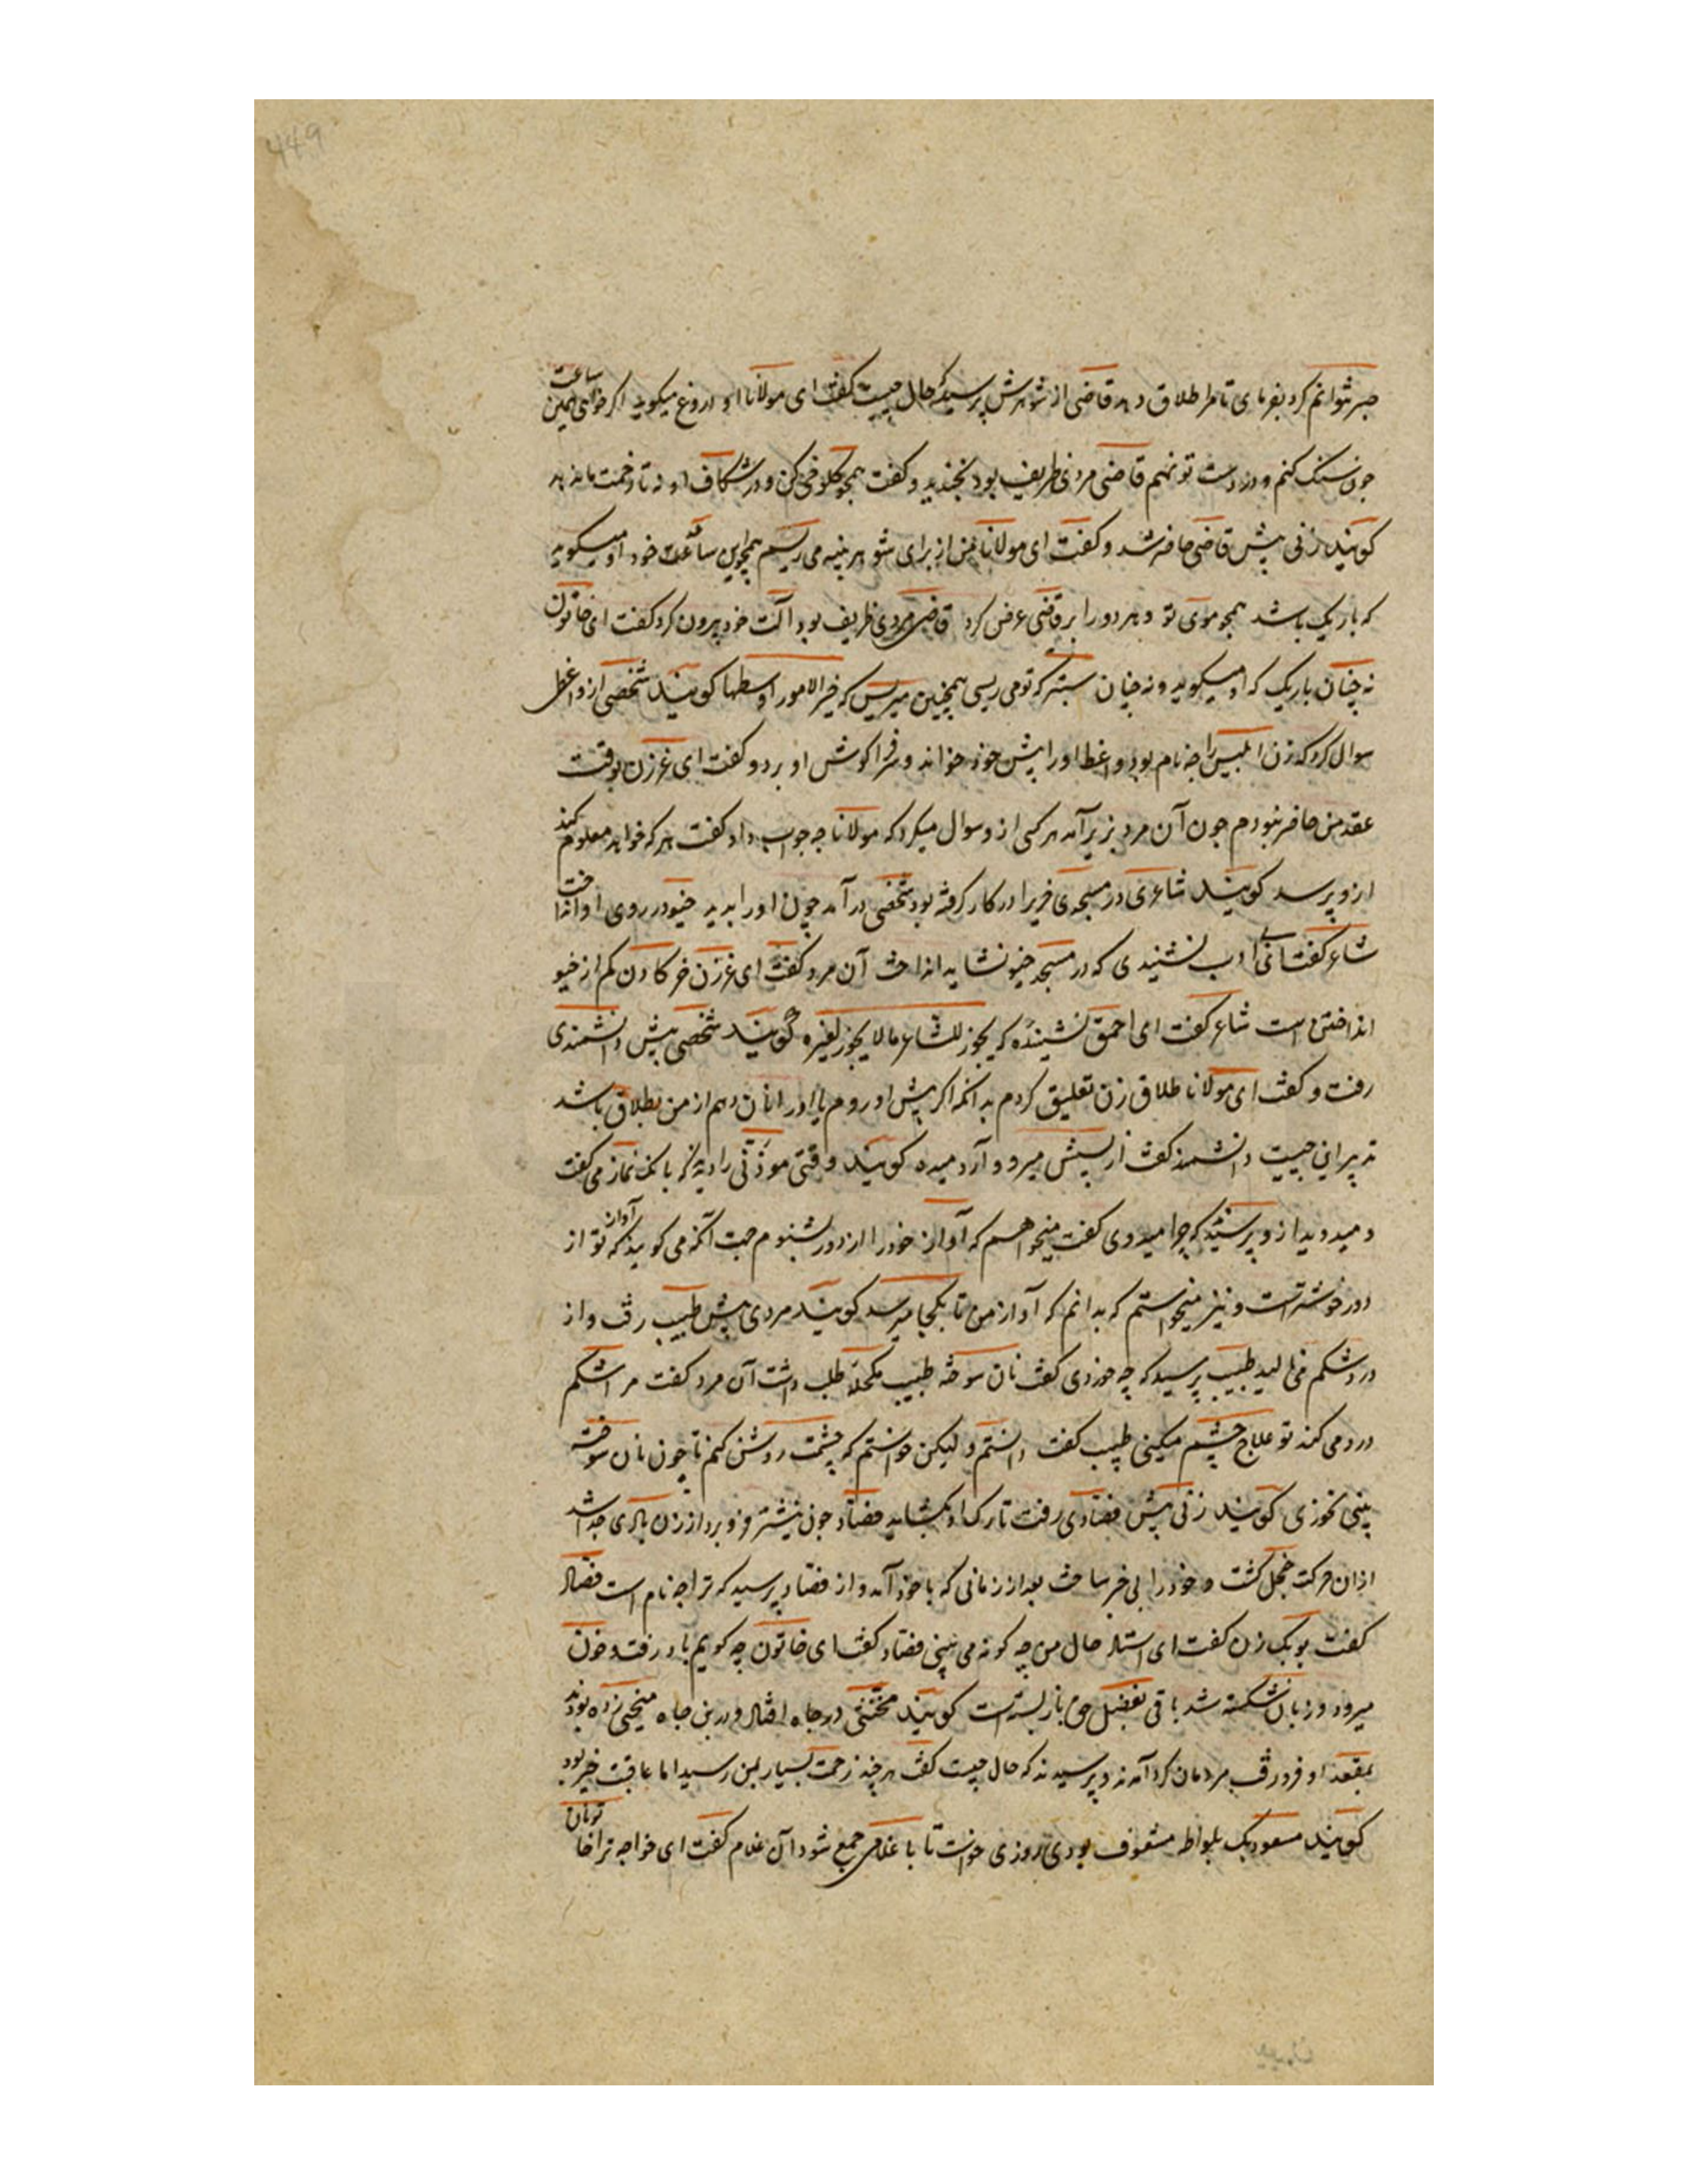 449
صبر نتوانم کرد بفرمای تا مرا طلاق دهد قاضی از شوهرش پرسید که حال چیست گفت ای مولانا او دروغ میکوید اکر خواهی همین ساعت
چون سنک کنم و در دست تو نهم قاضی مردی ظریف بود بخندید و کفت همچو کلوخی کن و در شکاف او نه تا زحمت ماند
کویند زنی پیش قاضی حاضر شد و کفت ای مولانا من از برای شوهر پنبه می ریسم همچو این ساعت خود او میکوید
که باریک باشد همچو موی تو و هر دو را بر قاضی عرض کرد قاضی مردی ظریف بود آلت خود بیرون کرد کفت ای خاتون
نه چنان باریک که او میکوید و نه چنان ستبر که تو می ریسی همچنین میریس که خیر الامور اوسطها کویند شخصی از واعظی
سوال کرد که زن ابلیس را چه نام بود واعظ او را پیش خود خواند و سر فرا کوش او برد و کفت ای غرزن بوقت
عقد من حاضر نبودم چون آن مرد بزیر آمد هر کسی ازو سوال میکرد که مولانا چه جواب داد کفت هر که خواهد معلوم کند
ازو پرسد کویند شاعری در مسجدی خری را در کار کرفته بود شخصی در آمد چون او را بدید خیو در روی او انداخت
شاعر کفت ای بی ادب نشنیدی که در مسجد خیو نشاید انداخت آن مرد کفت ای غرزن خر کادن کم از خیو
انداختن است شاعر کفت ای احمق نشنیده که یجوز للشاعر ما لا یجوز لغیره کویند شخصی پیش دانشمندی
رفت و کفت ای مولانا طلاق زن تعلیق کردم به آنکه اکر پیش او روم یا او را نان دهم از من بطلاق باشد
تدبیر این چیست دانشمند کفت از پسش میرو و آرد میده کویند وقتی موذنی را دیدند که بانک نماز می کفت
و میدوید ازو پرسیدند که چرا میدوی کفت میخواهم که آواز خود را از دور بشنوم جهت آنکه می کویند که آواز تو از
دور خوشتر است و نیز میخواستم که بدانم که آواز من تا بکجا میرسد کویند مردی پیش طبیب رفت و از
درد شکم می نالید طبیب پرسید که چه خوردی کفت نان سوخته طبیب مکحله طلب داشت آن مرد کفت مرا شکم
درد می کند تو علاج چشم میکنی طبیب کفت دانستم و لیکن خواستم که چشمت روشن کنم تا چون نان سوخته
بینی نخوری کویند زنی پیش فصادی رفت تا رک او بکشاید فصاد چون نیشتر فرو برد از زن بادی جدا شد
ازان حرکت خجل کشت و خود را بی خبر ساخت بعد از زمانی که با خود آمد و از فصاد پرسید که ترا چه نام است فصاد
کفت بوبک زن کفت ای استاد حال من چه کونه می بینی فصاد کفت ای خاتون چه کویم باد رفت و خون
میرود و زبان شکسته شد باقی بفضل حق باز بسته است کویند مخنثی در چاه افتاد و در بن چاه میخی زده بودند
بمقعد او فرو رفت مردمان کرد آمدند و پرسیدند که حال چیست کفت هر چند زحمت بسیار بمن رسید اما عاقبت خیر بود
کویند مسعود بک بلواطه مشعوف بودی روزی خواست تا با غلامی جمع شود آن غلام کفت ای خواجه ترا خاتونان